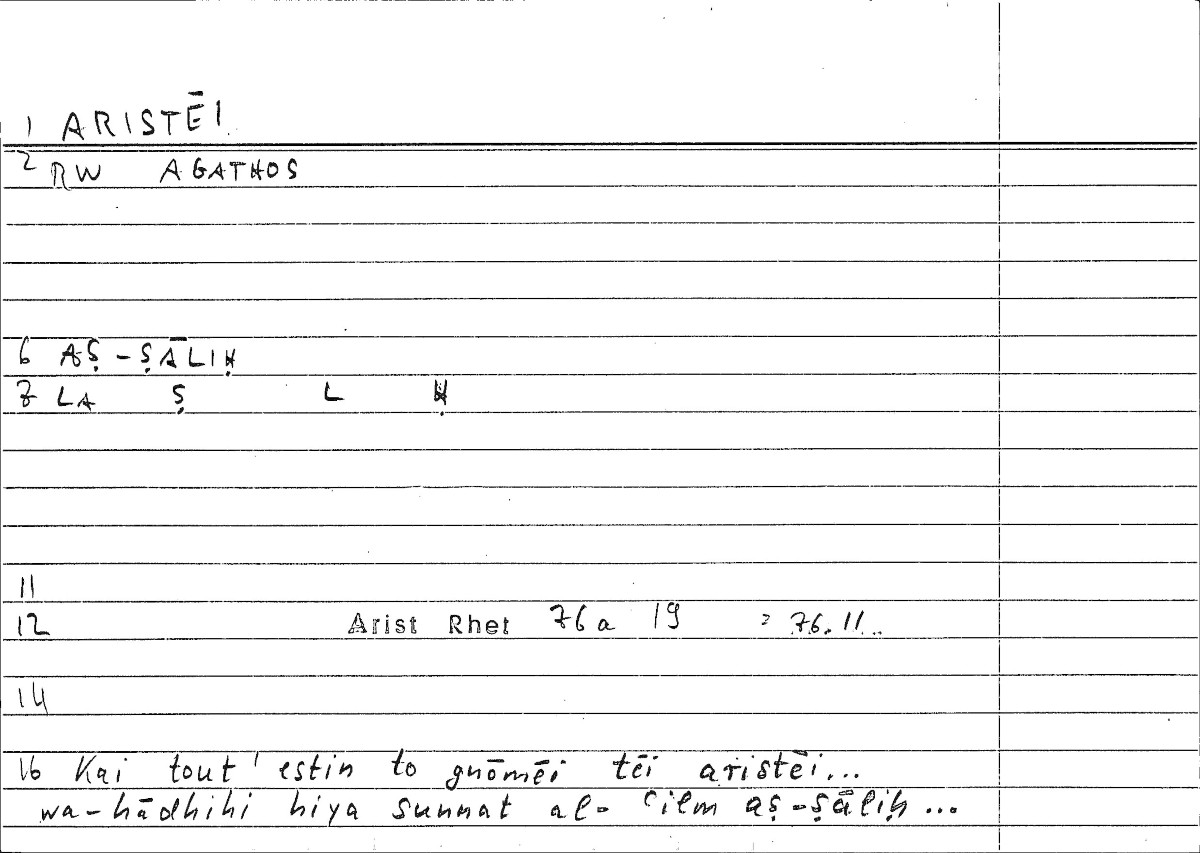 1 ARISTĒI
2 RW AGATHOS
6 AṢ-ṢĀLIḤ
7 LA Ṣ L Ḥ
11
12 Arist Rhet 76a 19 = 76.11
14
16 Kai tout' estin to gnōmēi tēi aristēi...
wa-hādhihi hiya sunnat al-ʿilm aṣ-ṣāliḥ...